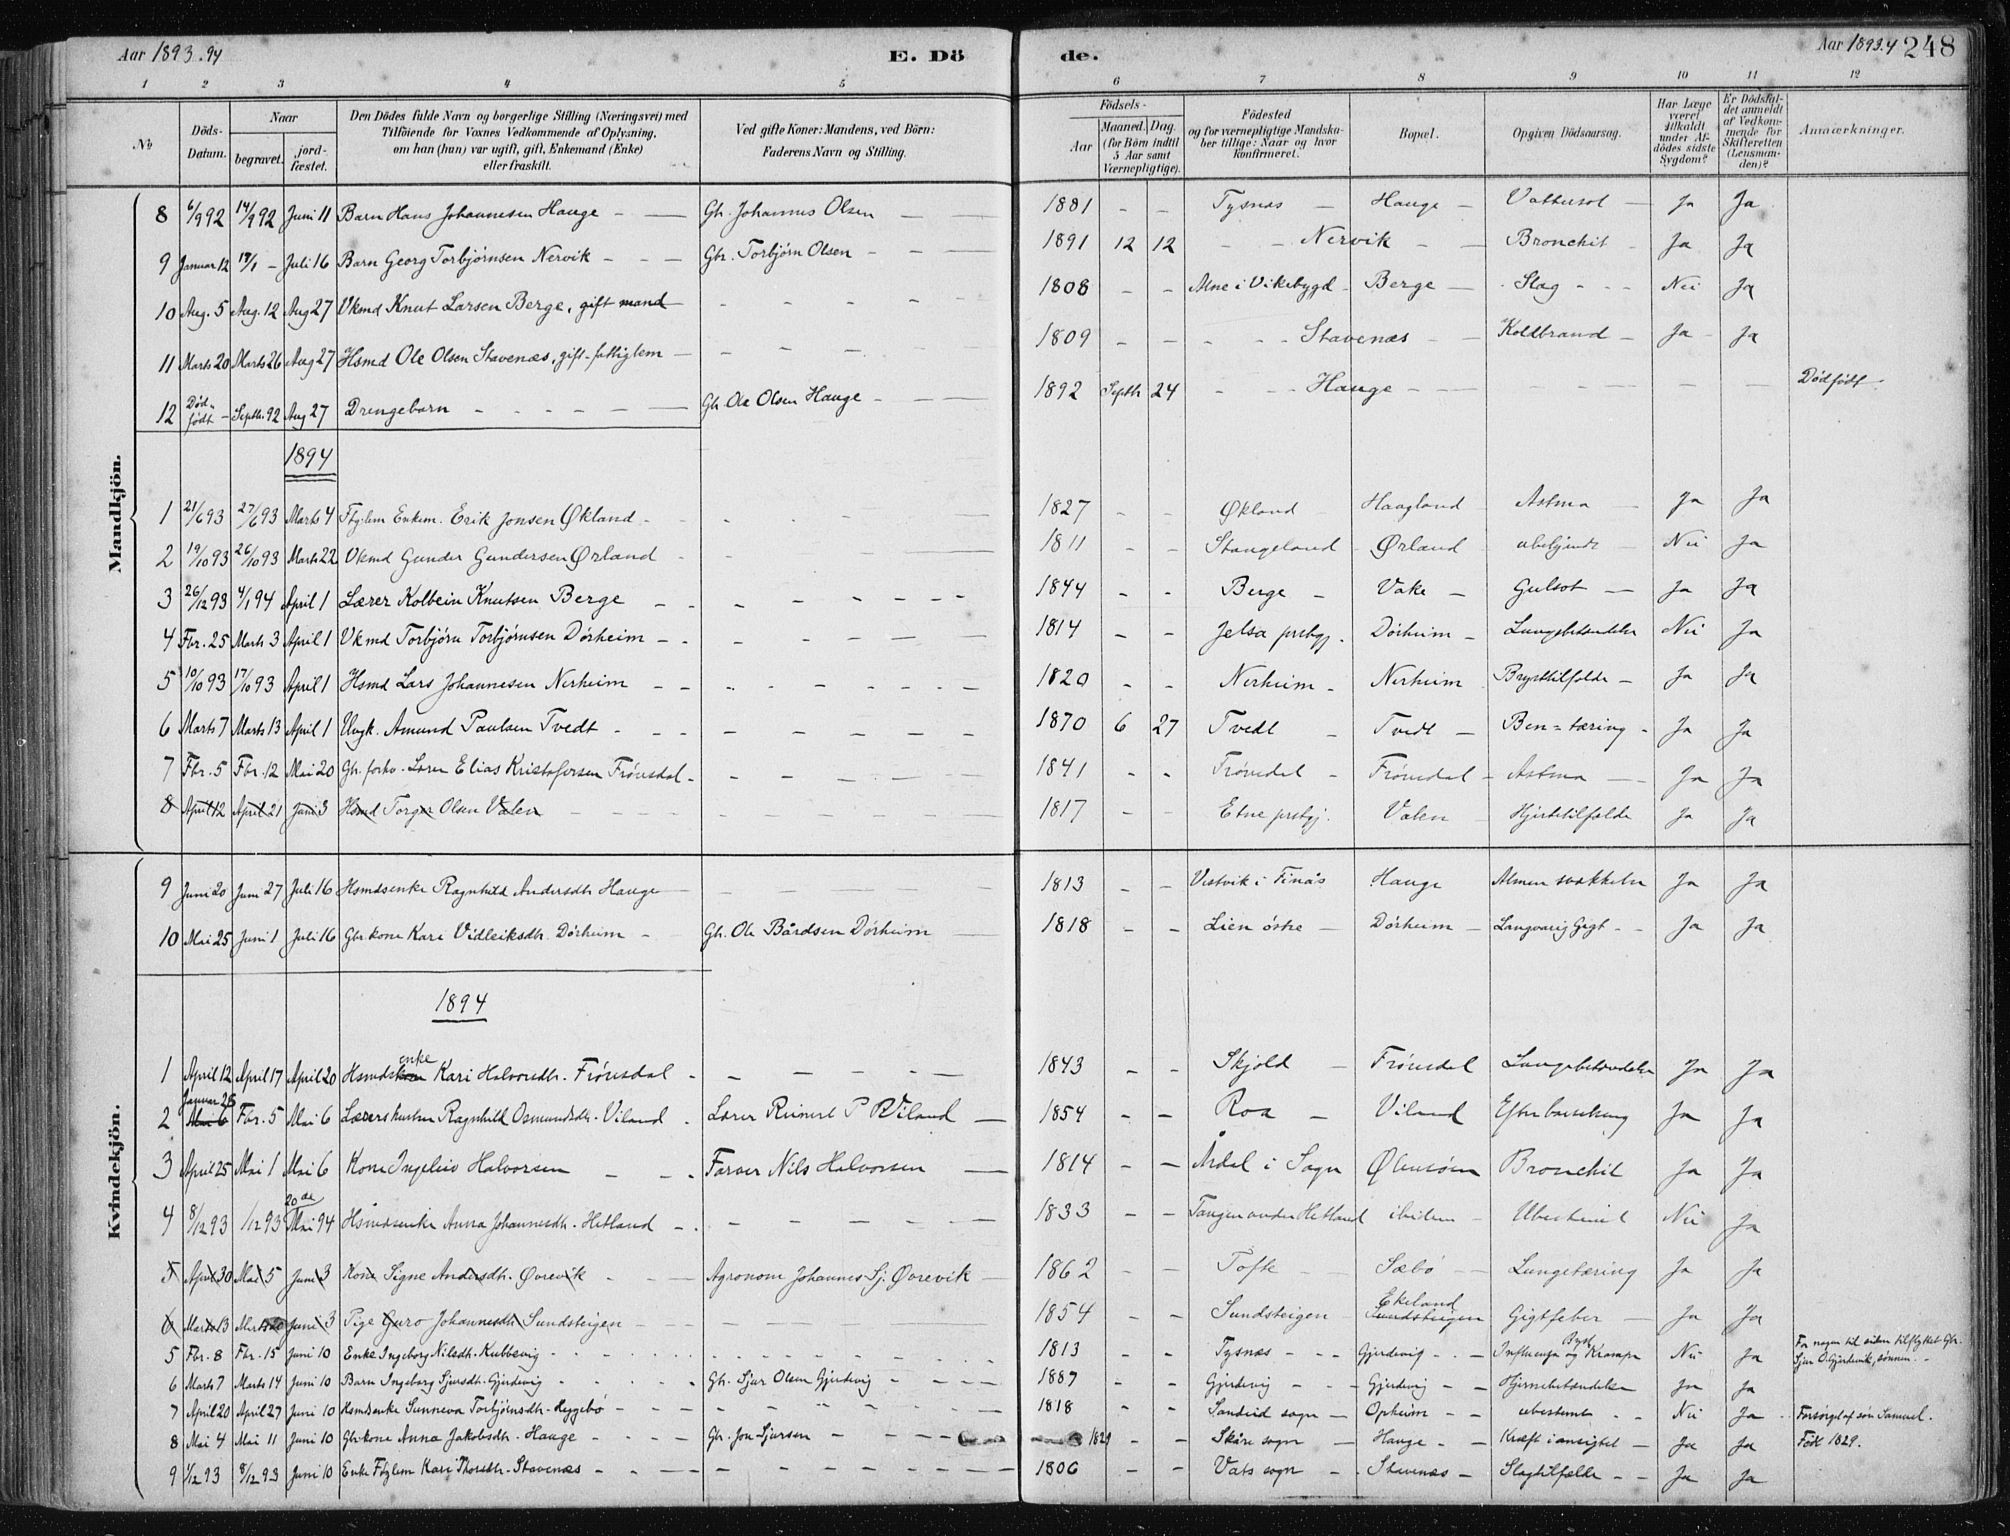 Aar 1893.94 E. Döde. Aar 1893.4 248
1 2 3 4 5 6 7 8 9 10 11 12
No
Döds-Datum.
Naar
begravet.
jordfæstet.
Den Dödes fulde Navn og borgerlige Stilling (Næringsvei) med
Tilföiende for Voxnes Vedkommende af Oplysning,
om han (hun) var ugift, gift, Enkemand (Enke)
eller fraskilt.
Ved gifte Koner: Mandens, ved Börn:
Faderens Navn og Stilling.
Födsels-
Aar
Maaned. Dag.
(for Börn indtil
5 Aar samt
Værnepligtige).
Födested
og for værnepligtige Mandska-
ber tillige: Naar og hvor
konfirmeret.
Bopæl.
Opgiven Dödsaarsag.
Har Læge
været
tilkaldt
under Af-
dödes sidste
Sygdom?
Er Dödsfal-
det anmeldt
af Vedkom-
mende for
Skifteretten
(Lensman-
den)?
Anmærkninger.
Mandkjön.
8 6/9 92 14/9 92 Juni 11 Barn Hans Johannesen Hauge Gbr. Johannes Olsen 1881 Tysnæs Hauge Vattersot Ja Ja
9 Januar 12 18/1 Juli 16 Barn Georg Torbjørnsen Nervik Gbr. Torbjørn Olsen 1891 12 12 Nervik Bronchit Ja Ja
10 Aug. 5 Aug. 12 Aug 27 Vkmd Knut Larsen Berge, gift mand 1808 Alne i Vikebygd Berge Slag Nei Ja
11 Marts 20 Marts 26 Aug 27 Hsmd Ole Olsen Stavenæs, gift - fattiglem 1809 Stavenæs Koldbrand Ja Ja
12 Dødfødt Septbr. 92 Aug 27 Drengebarn Gbr. Ole Olsen Hauge 1892 Septbr 24 Hauge Dødfødt
1894
1 21/6 93 27/6 93 Marts 4 Ftglem Enkem. Erik Jonsen Økland 1827 Økland Haagland Astma Ja Ja
2 19/10 93 26/10 93 Marts 22 Vkmd Gunder Gundersen Ørland 1811 Stangeland Ørland Nei Ja
3 26/12 93 4/1 94 April 1 Lærer Kolbein Knutsen Berge 1844 Berge Vake Gulsot Ja Ja
4 Fbr. 25 Marts 3 April 1 Vkmd Torbjørn Torbjørnsen Dørheim 1814 Jelsa prstgj. Dørheim Lungebetændelse Nei Ja
5 10/10 93 17/10 93 April 1 Hsmd Lars Johannesen Nerheim 1820 Nerheim Nerheim Brysttilfælde Ja Ja
6 Marts 7 Marts 13 April 1 Ungk. Amund Paulsen Tvedt 1870 6 27 Tvedt Tvedt Ben=tæring Ja Ja
7 Fbr. 5 Fbr. 12 Mai 20 Gbr. forhv. Lærer Elias Kristofersen Frønsdal 1841 Frønsdal Frønsdal Astma Ja Ja
8 April 12 April 21 Juni 3 Hsmd Torger Olsen Valen 1817 Etne prstgj. Valen Hjertetilfælde Ja Ja
Kvindekjön.
9 Juni 20 Juni 27 Juli 16 Hsmdsenke Ragnhild Andersdtr Hauge 1813 Vestvik i Finås Hauge Almen svækkelse Ja Ja
10 Mai 25 Juni 1 Juli 16 Gbrkone Kari Vidleiksdtr. Dørheim Gbr. Ole Bårdsen Dørheim 1818 Lien østre Dørheim Langvarig Gigt Ja Ja
1894
1 April 12 April 17 April 20 Hsmdskone enke Kari Halvorsdtr. Frønsdal 1843 Skjold Frønsdal Lungebetændelse Ja Ja
Januar 26
2 Mai 6 Fbr. 5 Mai 6 Lærerskustru Ragnhild Osmundsdtr. Viland Lærer Reinert P Viland 1854 Roa Viland Ja Ja
3 April 25 Mai 1 Mai 6 Kone Ingeleiv Halvorsen Farver Nils Halvorsen 1814 Årdal i Sogn Ølensøen Bronchit Ja Ja
4 8/12 93 /12 93 20de Mai 94 Hsmdsenke Anna Johannesdtr. Hetland 1833 Tangen under Hetland ibidem Ubestemt Nei Ja
5 April 30 Mai 5 Juni 3 Kone Signe Andersdtr. Øvrevik Agronom Johannes Sj. Øvrevik 1862 Tofte Sæbø Lungetæring Ja Ja
6 Marts 13 Marts 20 Juni 3 Pige Guro Johannesdtr Sundsteigen 1854 Sundsteigen Sundsteigen Ekeland Gigtfeber Ja Ja
5 Fbr. 8 Fbr. 15 Juni 10 Enke Ingeborg Nilsdtr. Kubbevig 1813 Tysnæs Gjerdevig Influenza og Bryst Krampe Nei Ja For nogen tid siden tilflyttet Gbr. Sjur O. Gjerdevik, sønnen.
6 Marts 7 Marts 14 Juni 10 Barn Ingeborg Sjursdtr. Gjerdevig Gbr. Sjur Olsen Gjerdevig 1889 Gjerdevig Gjerdevig Hjernebetændelse Ja Ja
7 April 20 April 27 Juni 10 Hsmdsenke Sunneva Torbjørnsdtr. Heggebø 1818 Sandeid sogn Opheim ubestemt Nei Ja Forsørget af søn Samuel.
8 Mai 4 Mai 11 Juni 10 Gbrkone Anna Jakobsdtr. Hauge Gbr. Jon Sjursen 1829 Skåre sogn Hauge Kræft i ansigtet Ja Ja Født 1829.
9 1/12 93 8/12 93 Juni 10 Enke Ftglem Kari Thorsdtr. Stavenæs 1806 Vats sogn Stavenæs Slagtilfælde Ja Ja